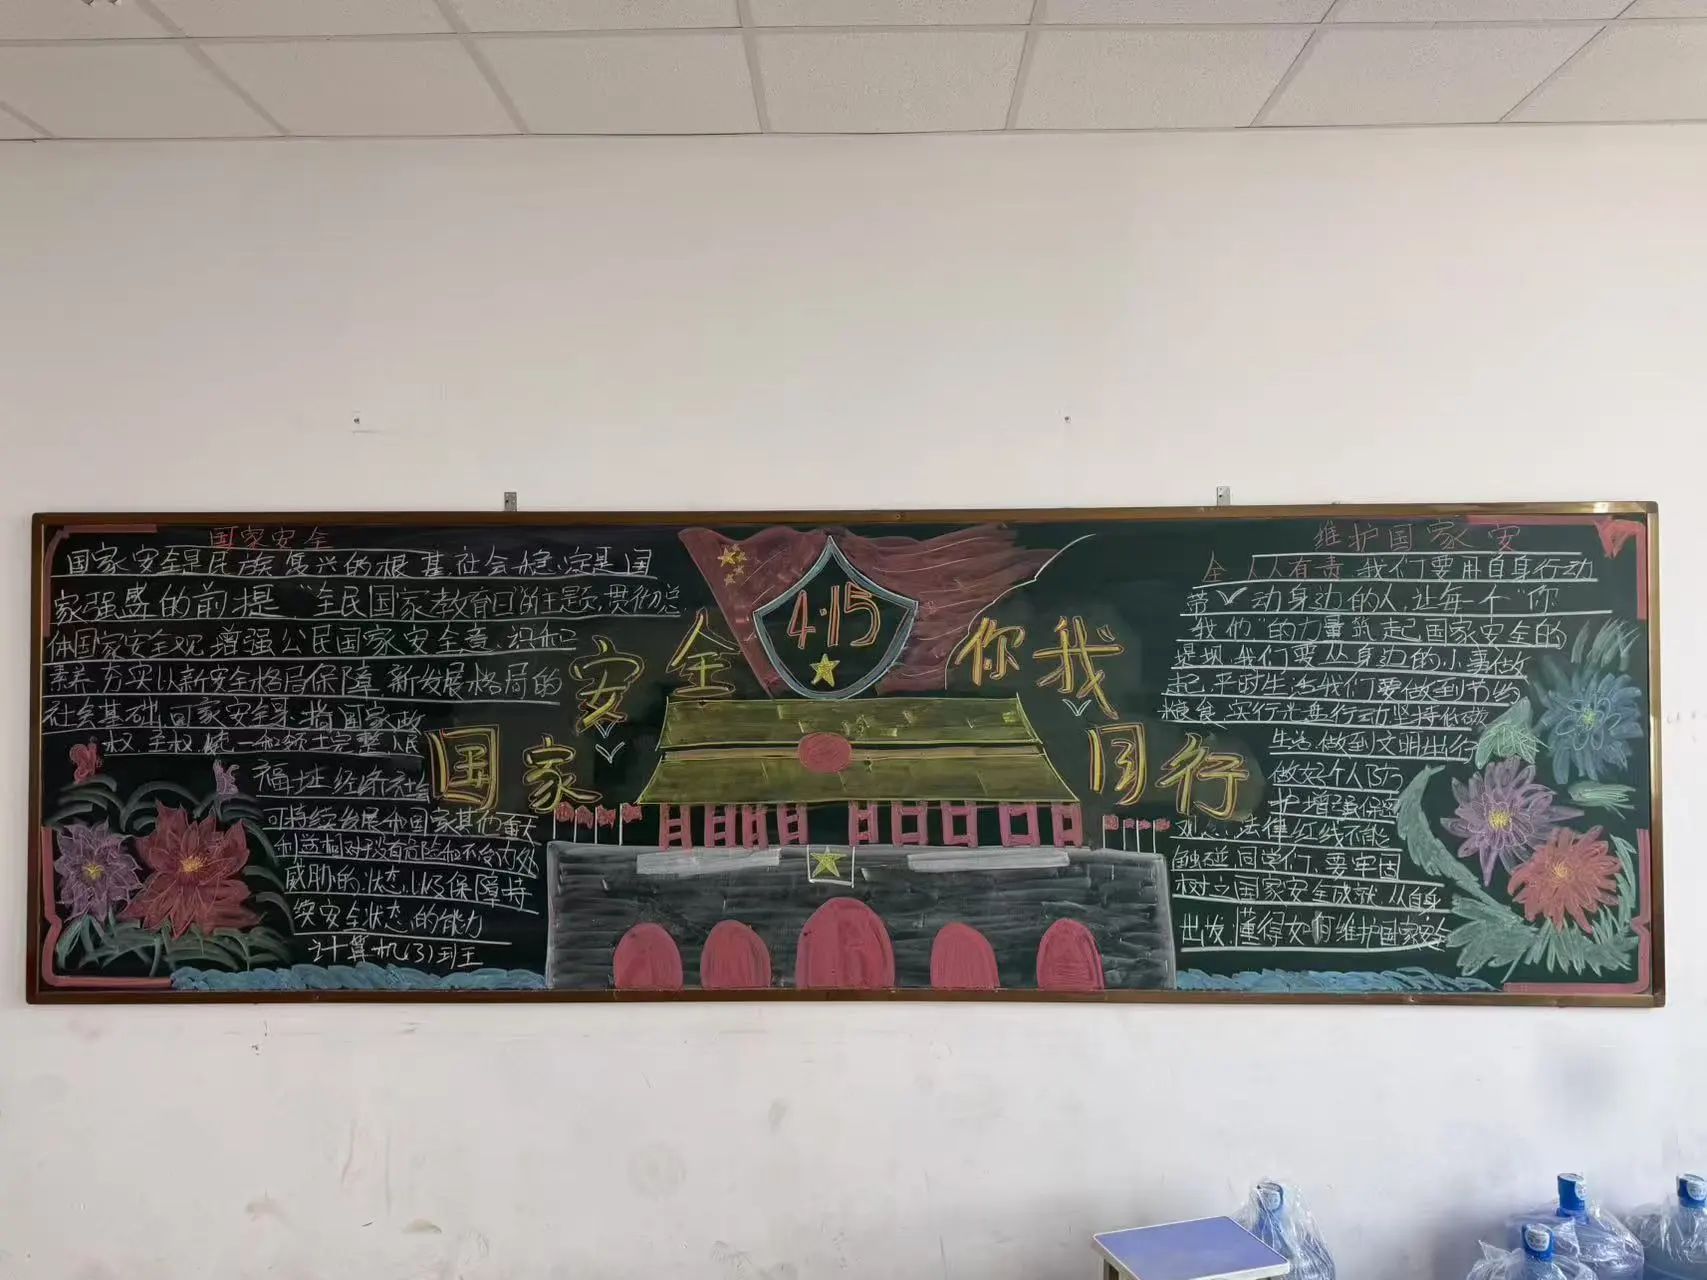 国家安全
国家安全是民族复兴的根基,社会稳定是国
家强盛的前提“全民国家教育日”的主题,贯彻总
体国家安全观,增强公民国家安全意识和
素养,夯实以新安全格局保障新发展格局的
社会基础,国家安全是指国家政
权,主权,统一和领土完整,人民
福址,经济社会
可持续发展和国家其他重大
利益相对没有危险和不受内外
威胁的状态,以及保障持
续安全状态的能力
计算机(3)班
4·15
国家安全 你我同行
维护国家安
全 人人有责 我们要用自身行动
带动身边的人,让每一个“你
我他”的力量筑起国家安全的
堤坝,我们要从身边的小事做
起,平时生活我们要做到节约
粮食,实行光盘行动,坚持低碳
生活,做到文明出行
做好个人防
护,增强保密
观念,法律红线不能
触碰,同学们,要牢固
树立国家安全成就,从自身
出发,懂得如何维护国家安全